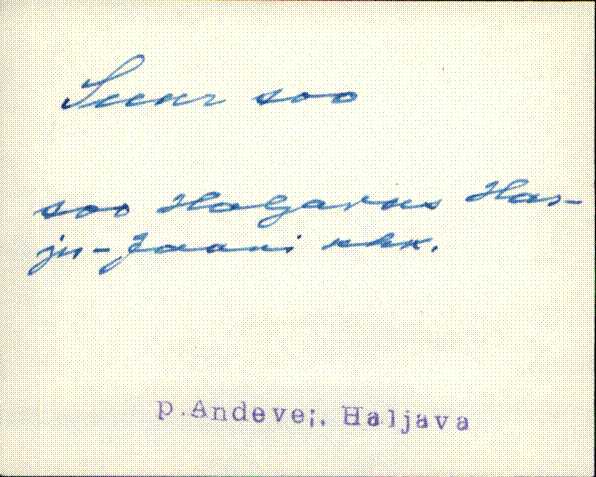 Suur soo
soo Haljavas Har-
ju-Jaani khk.
p.Andevei, Haljava